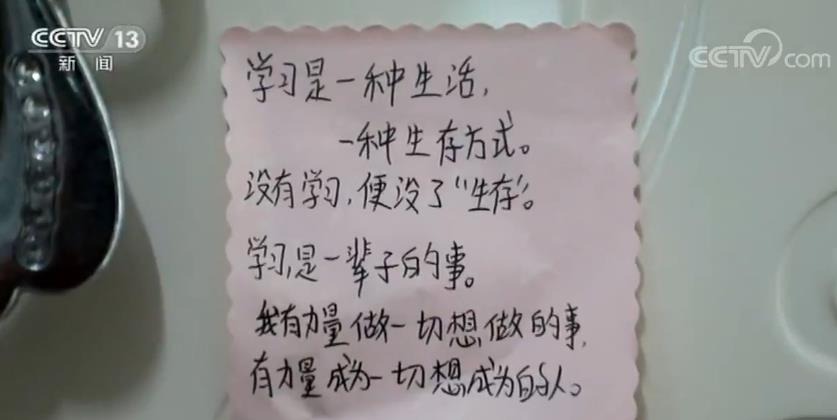 CCTV 13
新闻
CCTV.com
学习是一种生活，
一种生存方式。
没有学习，便没了“生存”。
学习，是一辈子的事。
我有力量做一切想做的事，
有力量成为一切想成为的人。